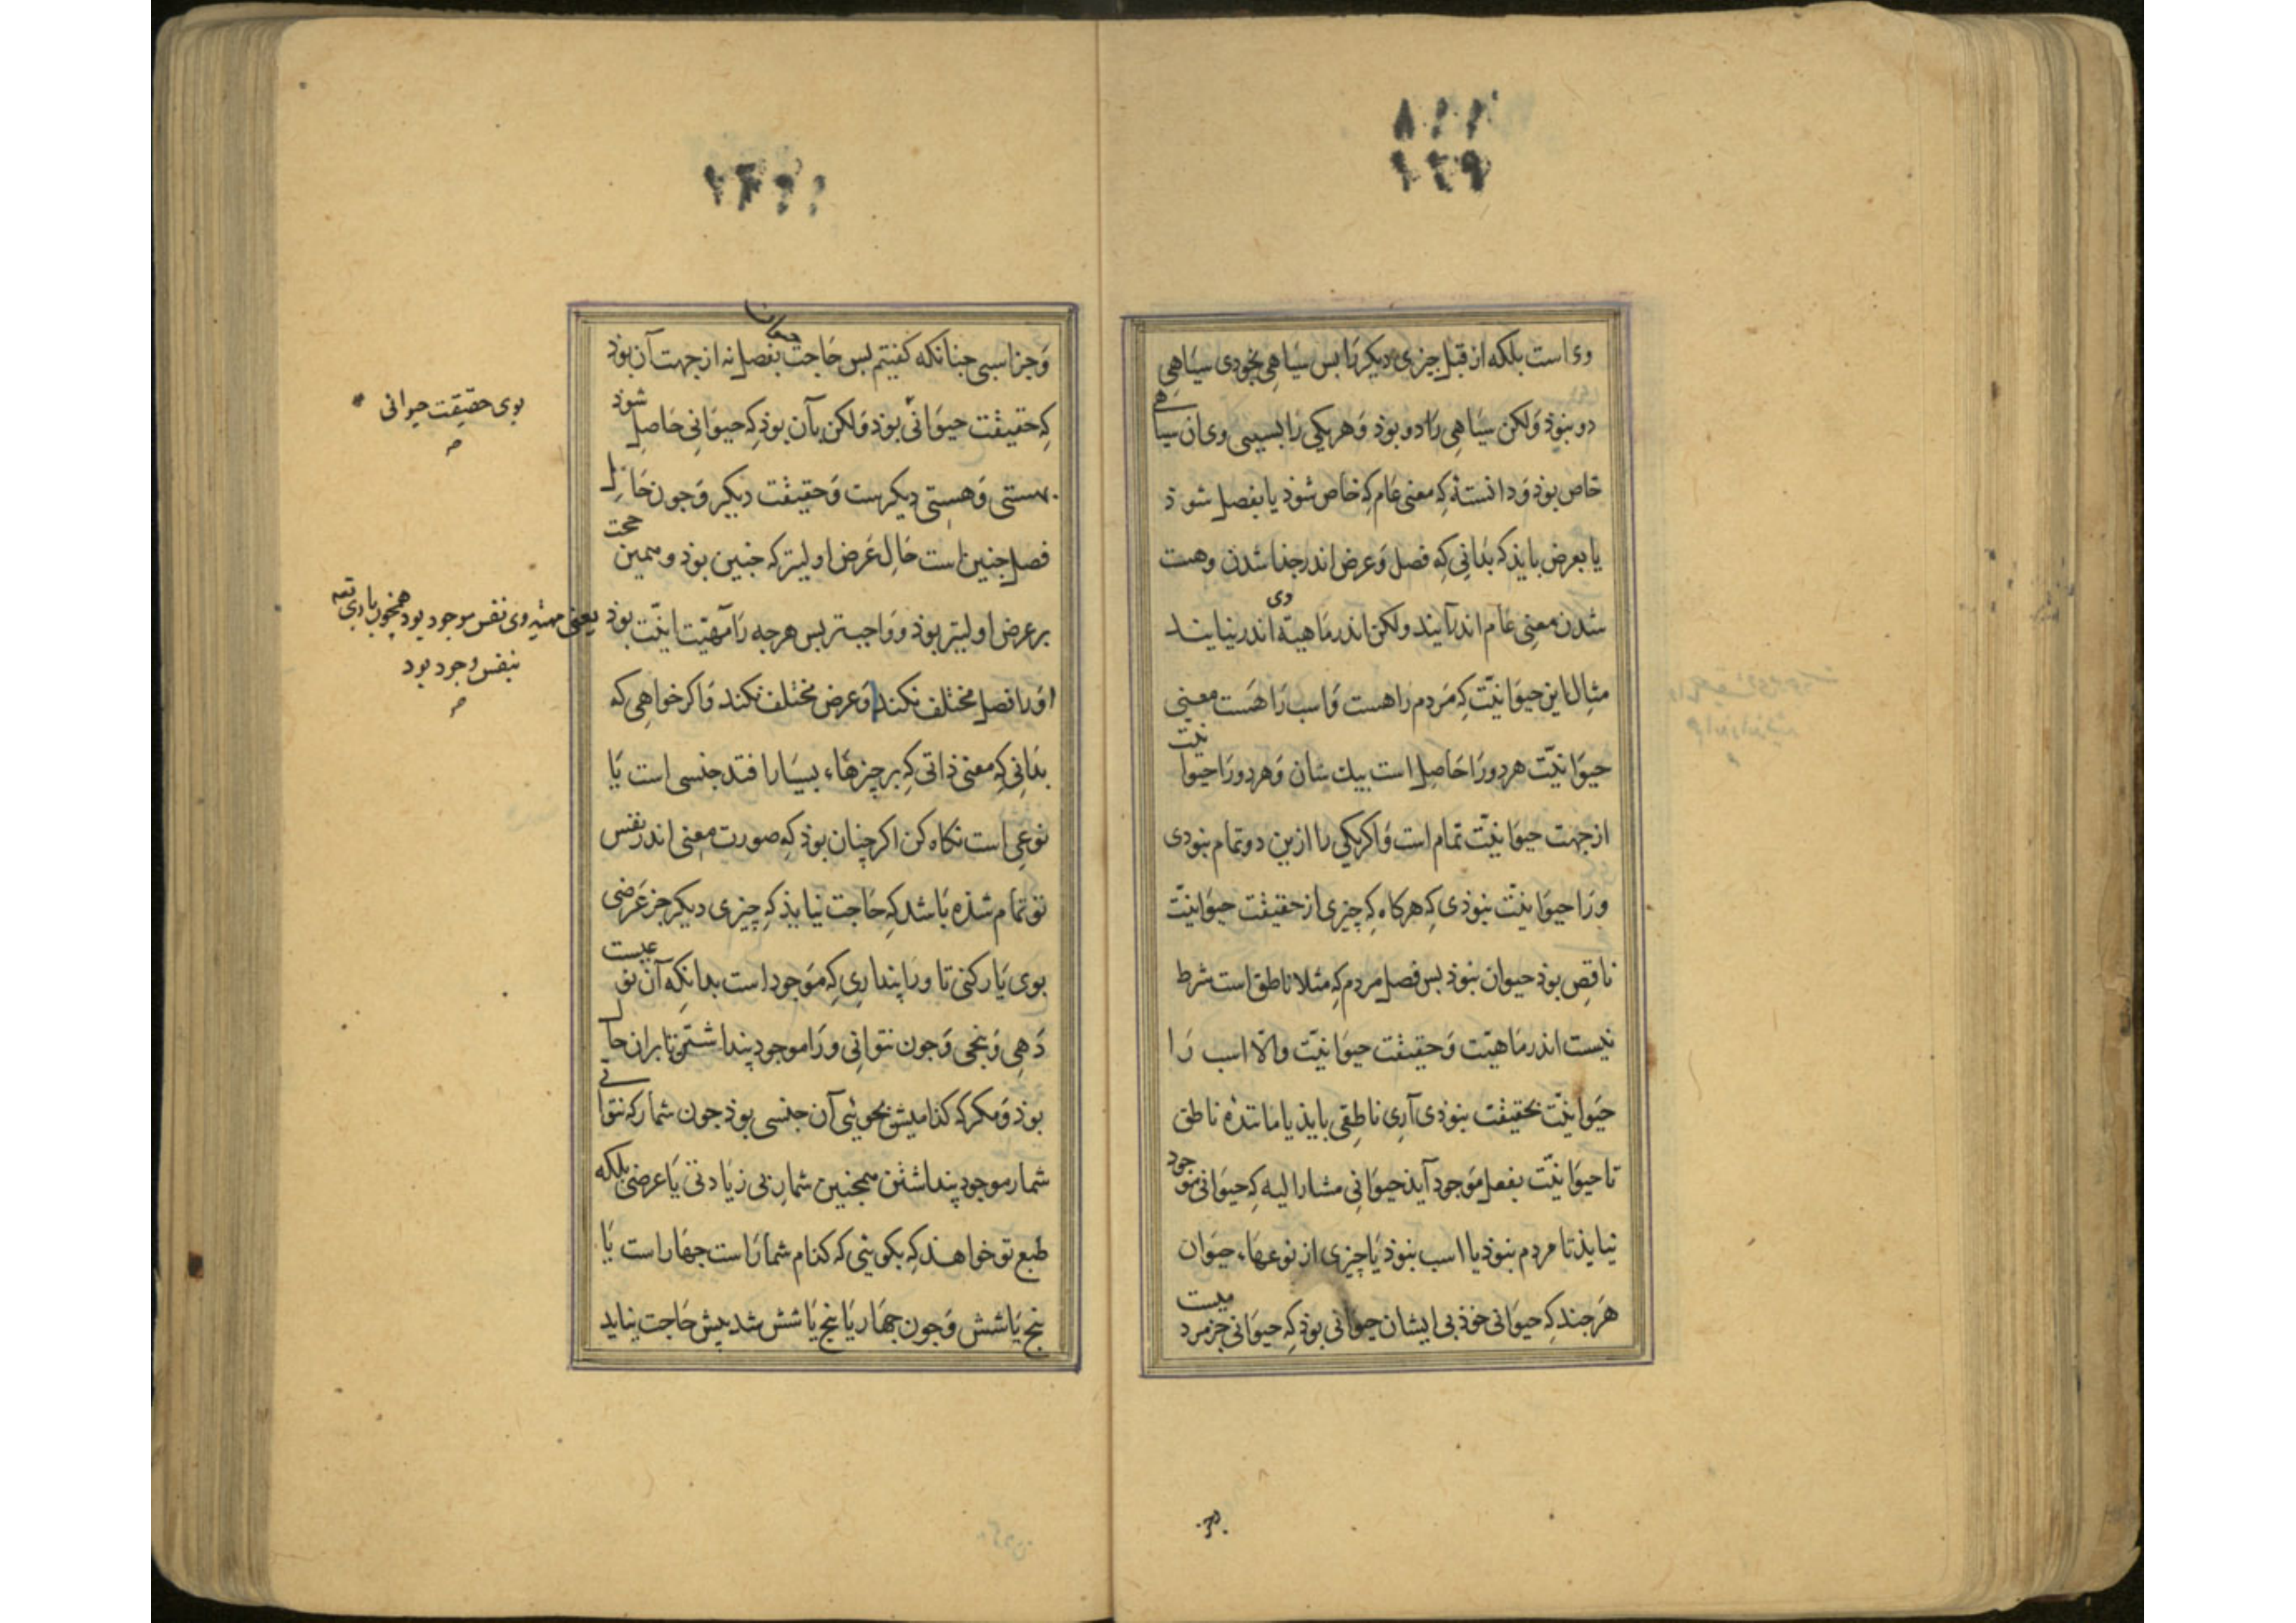 وی است بلکه از قبل چیزی دیکر را بس سیاهی بخودی سیاهی
دو نبوذ وَلکن سیاهی را دو بوذ وَهریکی را بسببی وی آن سیاهی
خاص بوذ وَدانستهٔ کِه معنی عام کِه خاص شوذ یا بفصل شوذ
یا بعرض بایذ که بدانی کِه فصل وَعرض اندر جذا شدن وهست
شدن معنی عام اندر آیند ولکن اندر ماهیة وی اندر نیایند
مثال این حیوانیّت کِه مَردم را هست وَاسب را هَست معنی
حیوانیّت هر دو رَا حَاصل است بیك سان وَهر دو رَا حیوانیّت
از جهت حیوانیّت تمام است وَاکر یکی را ازین دو تمام نبودی
ورَا حیوانیّت نبوذی کِه هرکاه کِه چیزی از حقیقت حیوانیّت
ناقص بوذ حیوان نبوذ بس فصل مَردم کِه مثلا ناطق است شرط
نیست اندر مَاهیّت وَحقیقت حیوانیّت والّا اسب رَا
حیوانیّت بحقیقت نبوذی آری ناطِقی بایذ یا مانندهٔ ناطق
تا حیوَانیّت بفعل مَوجود آیذ حیوَانی مشار الیه کِه حیوَانی موجود
نیایذ تا مردم نبوذ یا اسب نبوذ یَا چیزی از نوعهَاء حیَوان
هَر جند کِه حیوَانی خوذ بی ایشان حیوَانی بوذ کِه حیوَانی جز مردمیست
وَجز اسبی جنانکه کفتیم بس حَاجت بفصل نه از جهت آن بوذ
کِه حقیقت حیوَانی بوذ وَلکن بآن بوذ کِه حیوَانی حَاصل شوذ
بهستی وَهستی دیکرست وَحقیقت دیکر وَجون حَال
فصل جنین است حَال عَرض اولیتر که جنین بوذ وهمین حجت
بر عرض اولیتر بوذ وَواجبتر بس هرجه رَا مَهیّت انیّت بوذ
اورا فصل مختلف نکند وَعرض مختلف نکند وَاکر خواهی که
بدَانی کِه معنی ذاتی کِه بر چیزهَاء بسیَار افتد جنسی است یَا
نوعی است نکاه کن اکر چنان بوذ کِه صورت معنی اندر نفس
تو تمام شذه بَاشد کِه حَاجت نیایذ کِه چیزی دیکر جز عَرضی
بوی یَار کنی تا ورَا پنداری کِه مَوجود است بدانکِه آن نوعیست
جون نتوانی ورَا موجود پنداشتن تا بران حال
شمار موجود پنداشتن همجنین شمار بی زیَادتی یَا عرضی بلکه
طبع تو خواهذ کِه بکوینی که کذام شمارَاست جهَار است یَا
بنج یَا شش وَجون جهَار یَا بنج یَا شش شد بیش حَاجت نیاید
بوی حقیقت حیوانی
یعنی مهیّه وی نفس موجود بود همچون باری تعه
بنفس وجود بود